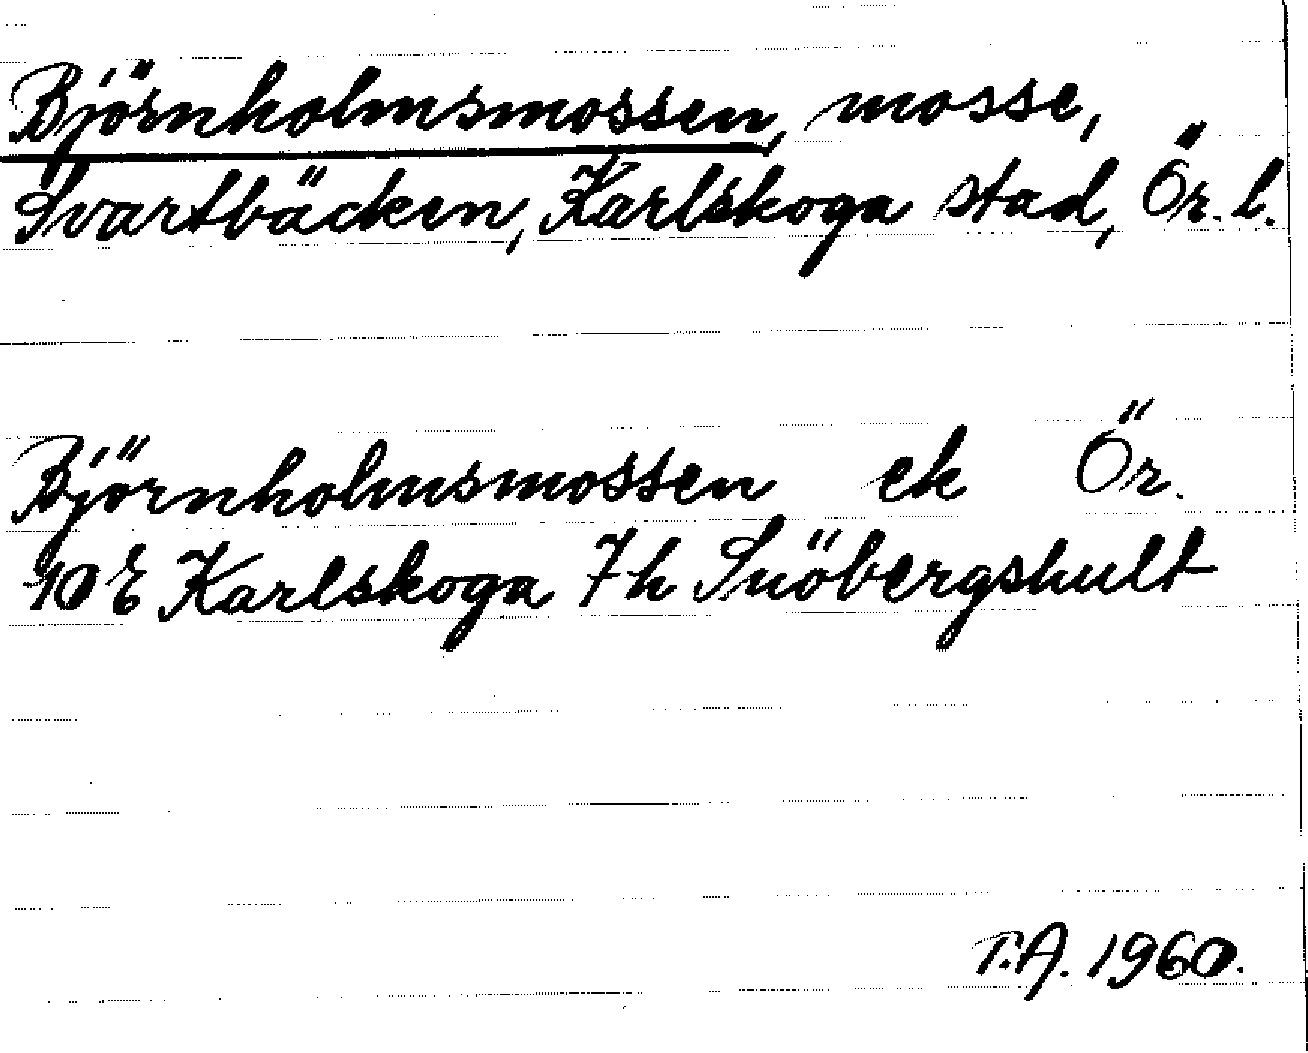 Björnholmsmossen, mosse,
Svartbäcken, Karlskoga stad, Ör. l.
Björnholmsmossen ek Ör.
10 E Karlskoga 7h Snöbergshult
T.A. 1960.